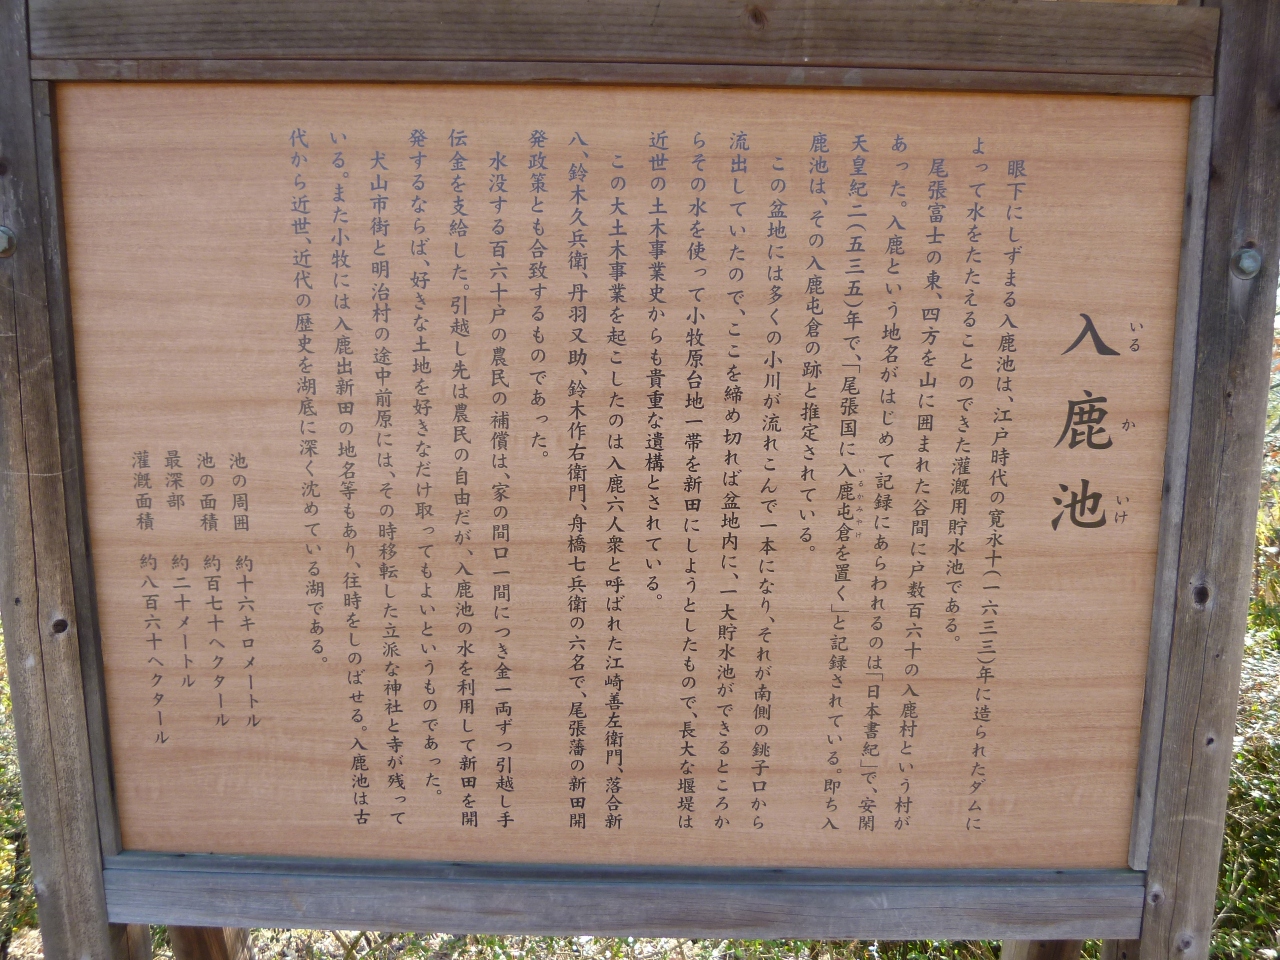 入鹿池
いるかいけ
眼下にしずまる入鹿池は、江戸時代の寛永十(一六三三)年に造られたダムに
よって水をたたえることのできた灌漑用貯水池である。
尾張富士の東、四方を山に囲まれた谷間に戸数百六十の入鹿村という村が
あった。入鹿という地名がはじめて記録にあらわれるのは「日本書紀」で、安閑
天皇紀二(五三五)年で、「尾張国に入鹿屯倉を置く」と記録されている。即ち入
いるかみやけ
鹿池は、その入鹿屯倉の跡と推定されている。
この盆地には多くの小川が流れこんで一本になり、それが南側の銚子口から
流出していたので、ここを締め切れば盆地内に、一大貯水池ができるところか
らその水を使って小牧原台地一帯を新田にしようとしたもので、長大な堰堤は
近世の土木事業史からも貴重な遺構とされている。
この大土木事業を起こしたのは入鹿六人衆と呼ばれた江崎善左衛門、落合新
八、鈴木久兵衛、丹羽又助、鈴木作右衛門、舟橋七兵衛の六名で、尾張藩の新田開
発政策とも合致するものであった。
水没する百六十戸の農民の補償は、家の間口一間につき金一両ずつ引越し手
伝金を支給した。引越し先は農民の自由だが、入鹿池の水を利用して新田を開
発するならば、好きな土地を好きなだけ取ってもよいというものであった。
犬山市街と明治村の途中前原には、その時移転した立派な神社と寺が残って
いる。また小牧には入鹿出新田の地名等もあり、往時をしのばせる。入鹿池は古
代から近世、近代の歴史を湖底に深く沈めている湖である。
池の周囲 約十六キロメートル
池の面積 約百七十ヘクタール
最深部 約二十メートル
灌漑面積 約八百六十ヘクタール